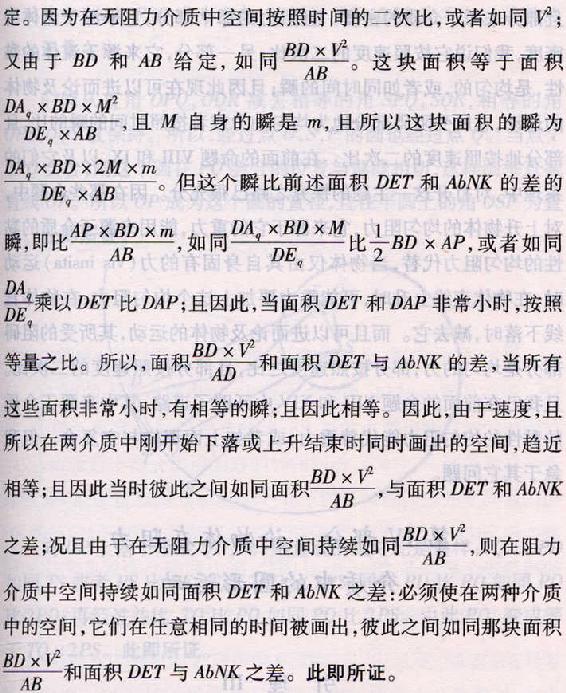 定。因为在无阻力介质中空间按照时间的二次比，或者如同 V²；
又由于 BD 和 AB 给定，如同 BD×V²/AB。这块面积等于面积
DA_q×BD×M²/DE_q×AB，且 M 自身的瞬是 m，且所以这块面积的瞬为
DA_q×BD×2M×m/DE_q×AB。但这个瞬比前述面积 DET 和 AbNK 的差的
瞬，即比 AP×BD×m/AB，如同 DA_q×BD×M/DE_q 比 1/2 BD×AP，或者如同
DA_q/DE_q 乘以 DET 比 DAP；且因此，当面积 DET 和 DAP 非常小时，按照
等量之比。所以，面积 BD×V²/AD 和面积 DET 与 AbNK 的差，当所有
这些面积非常小时，有相等的瞬；且因此相等。因此，由于速度，且
所以在两介质中刚开始下落或上升结束时同时画出的空间，趋近
相等；且因此当时彼此之间如同面积 BD×V²/AB，与面积 DET 和 AbNK
之差；况且由于在无阻力介质中空间持续如同 BD×V²/AB，则在阻力
介质中空间持续如同面积 DET 和 AbNK 之差：必须使在两种介质
中的空间，它们在任意相同的时间被画出，彼此之间如同那块面积
BD×V²/AB 和面积 DET 与 AbNK 之差。此即所证。